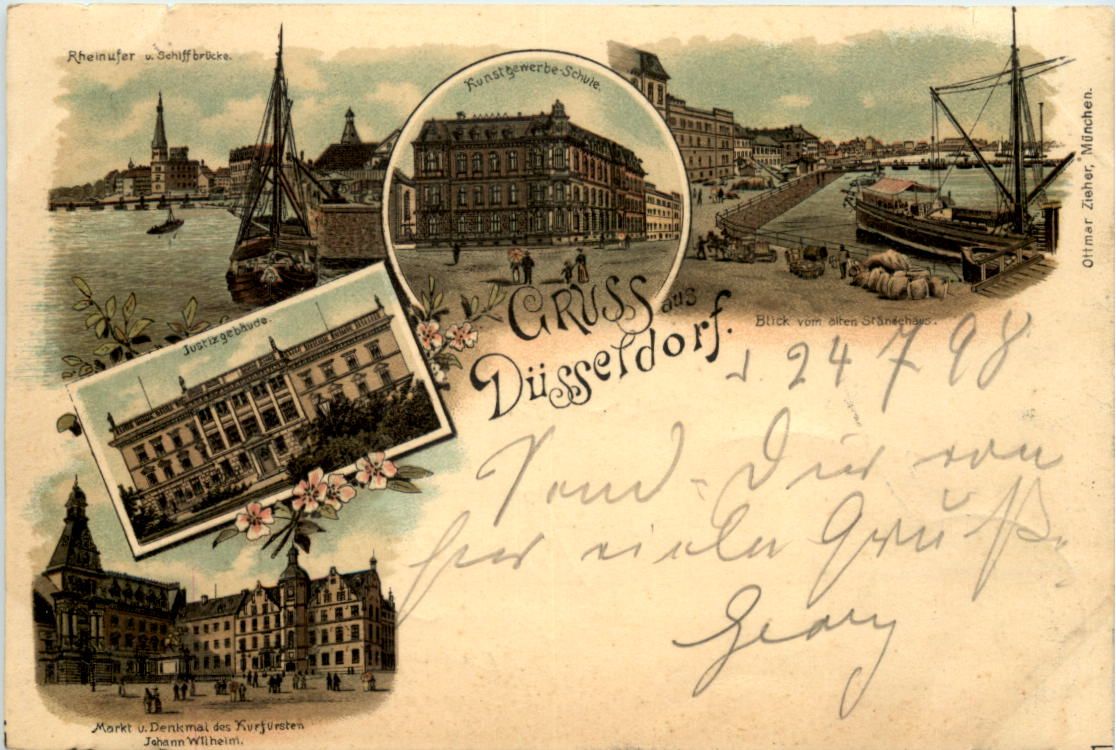 Rheinufer u. Schiffbrücke.
Kunstgewerbe-Schule.
Ottmar Zieher, München.
Blick vom alten Ständehaus.
Justizgebäude.
GRUSS aus
Düsseldorf.
24 7 98
Dir von
hier viele Grüß.
Georg
Markt u. Denkmal des Kurfürsten
Johann Wilhelm.